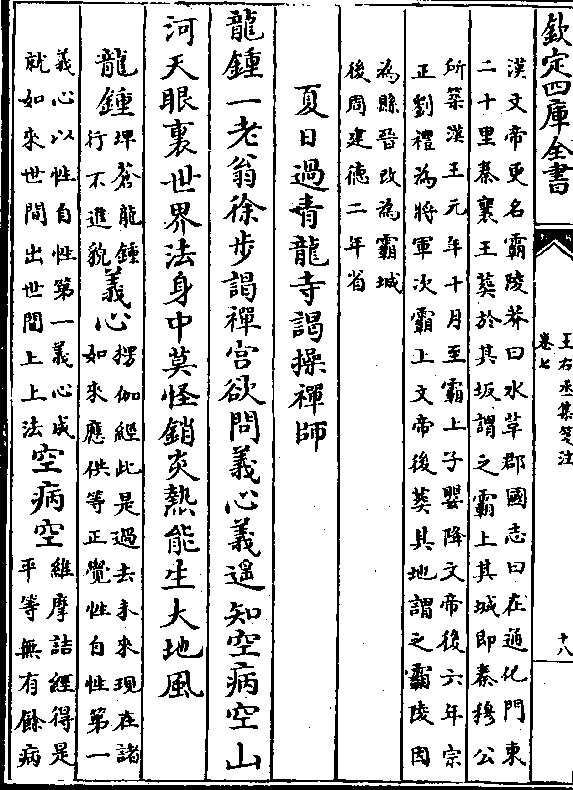 欽定四庫全書
王右丞集箋注
卷七
十八
漢文帝更名霸陵莽曰水草郡國志曰在通化門東
二十里秦襄王葬於其坂謂之霸上其城即秦穆公
所築漢王元年十月至霸上子嬰降文帝後六年宗
正劉禮為將軍次霸上文帝後葬其地謂之霸陵因
為縣晉改為霸城
後周建德二年省
夏日過青龍寺謁操禪師
龍鍾一老翁徐步謁禪宫欲問義心義遥知空病空山
河天眼裏世界法身中莫怪銷炎熱能生大地風
龍鍾
埤蒼龍鍾
行不進貌
義心
楞伽經此是過去未來現在諸
如來應供等正覺性自性第一
義心以性自性第一義心成
就如來世間出世間上上法
空病空
維摩詰經得是
平等無有餘病